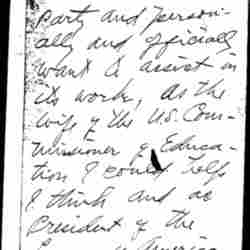 party and person-
ally and officially
want to assist in
its work, as the
wife of the U.S. Com-
missioner of Educa-
tion I could help
I think and as
President of the